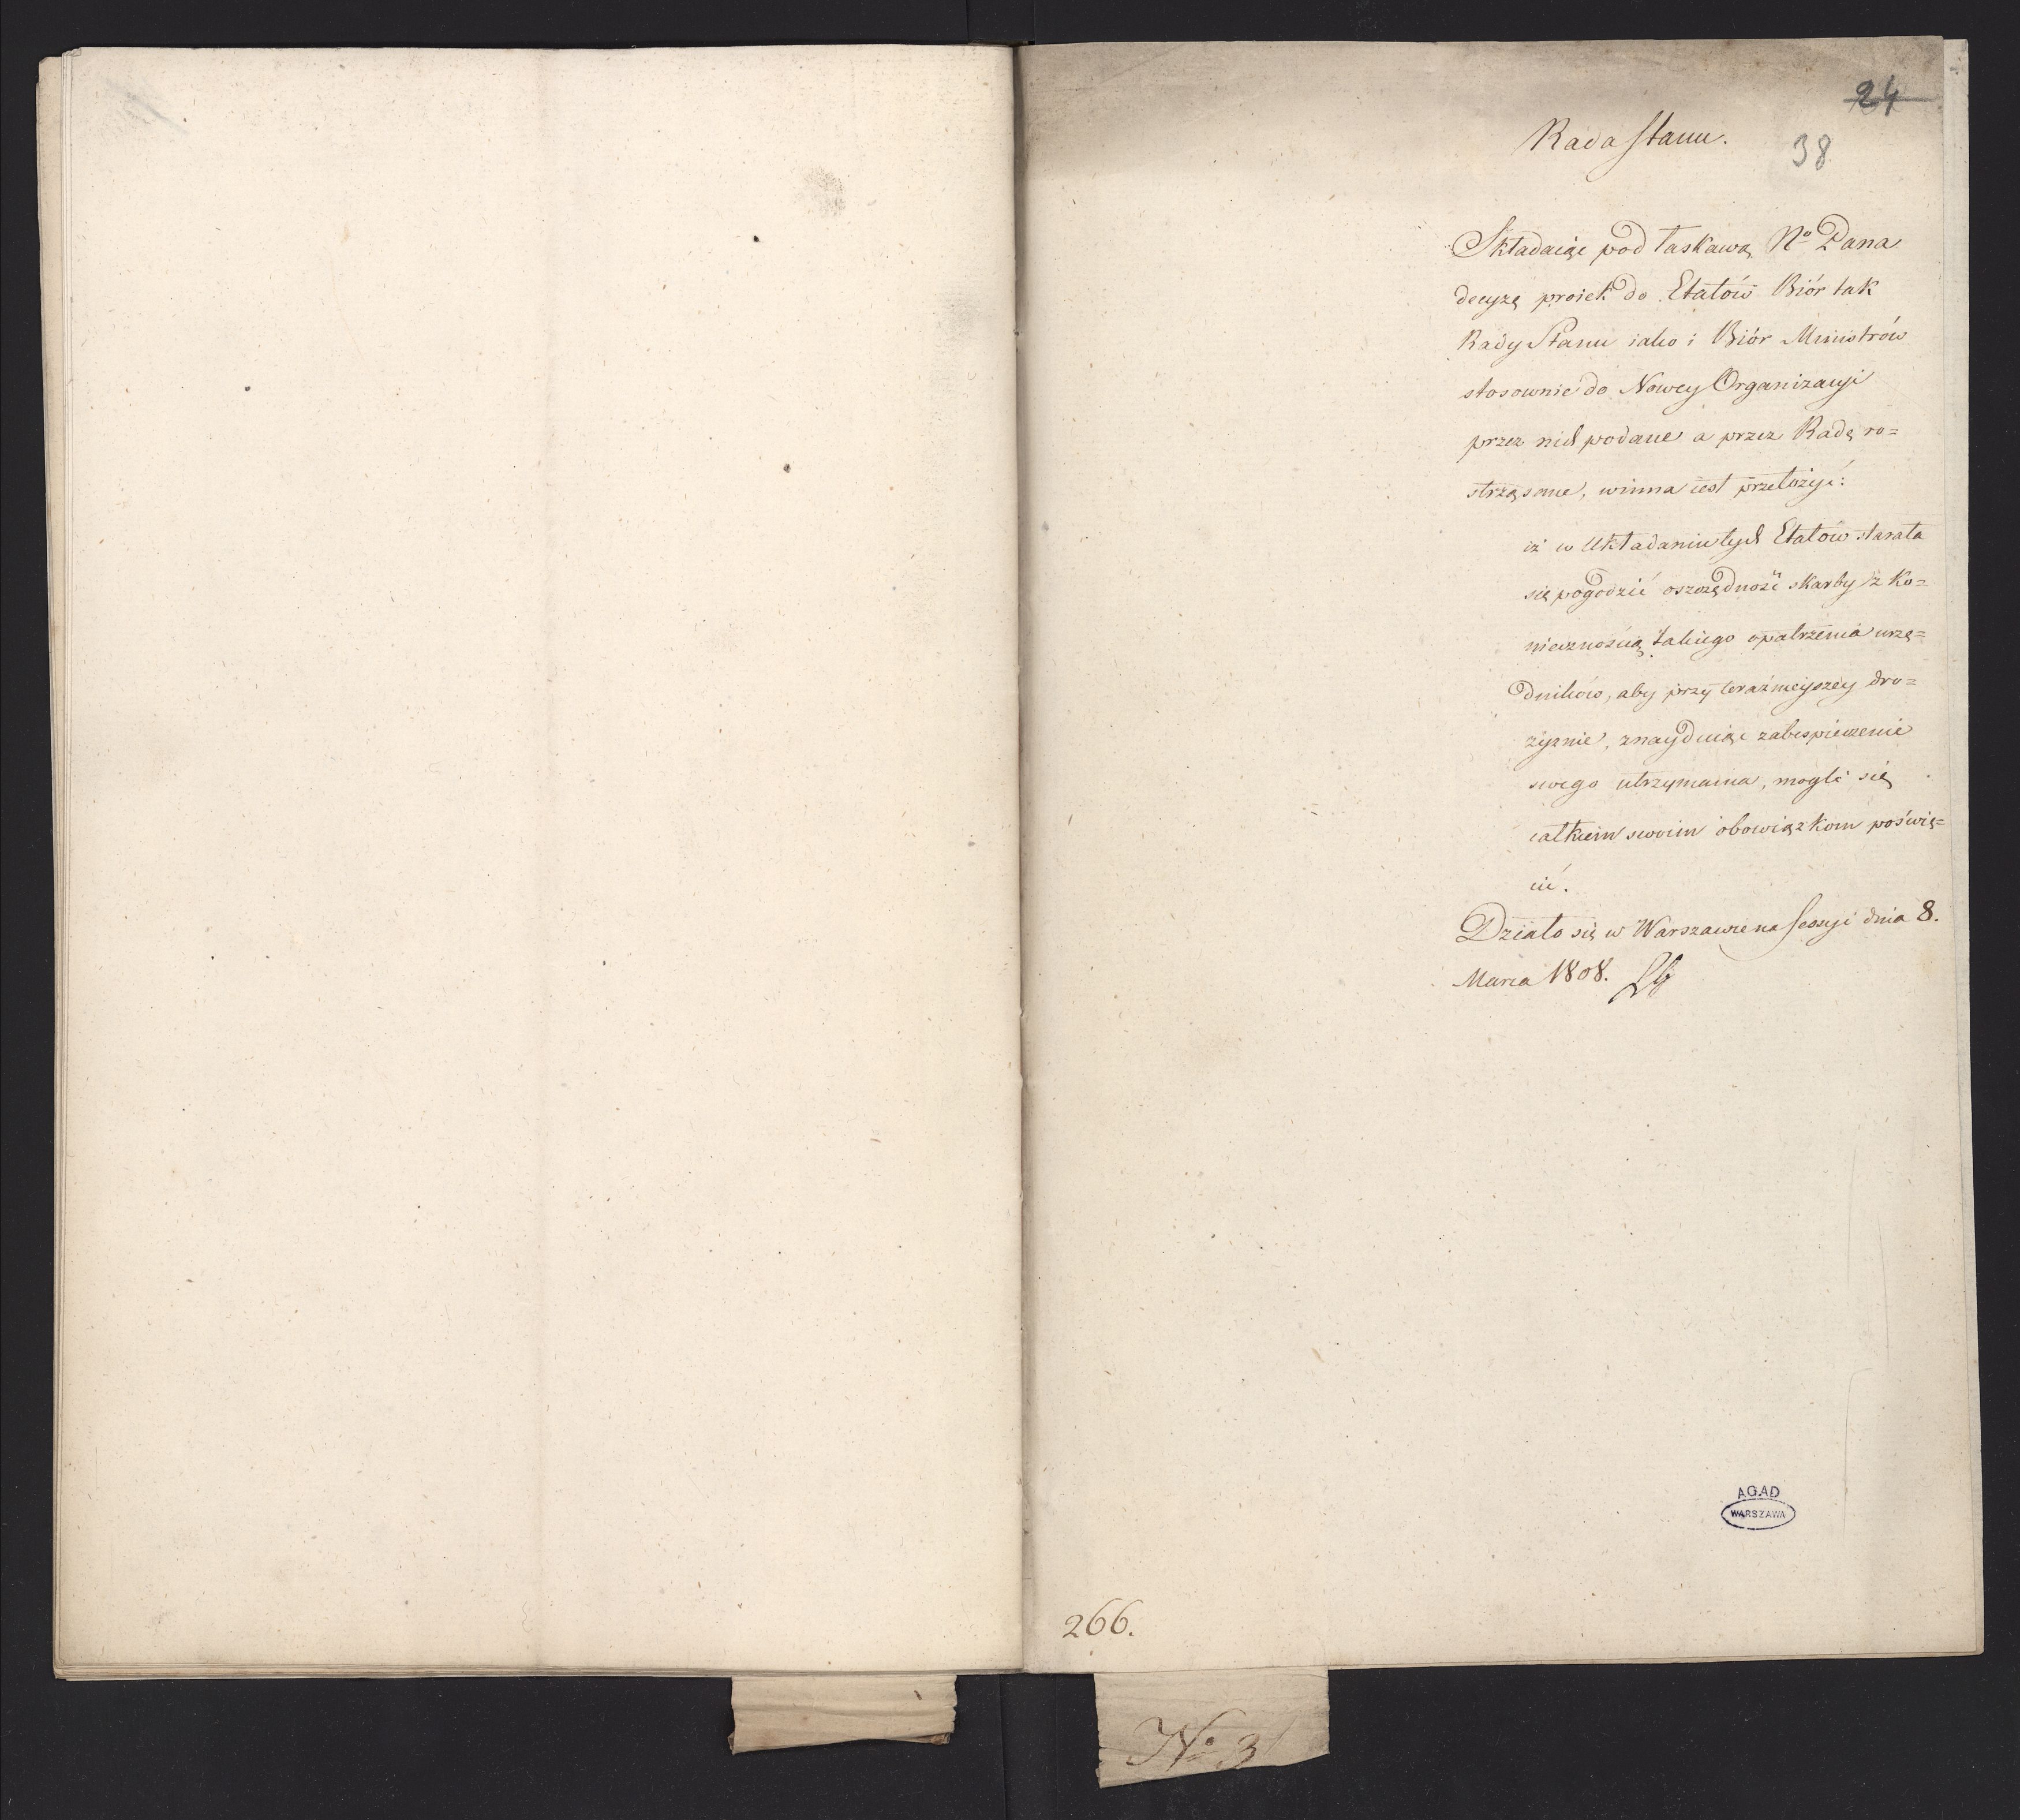 24
Rada Stanu.
38
Składaiąc pod łaskawą No Pana
decyzę proiekt do Etatów Biór tak
Rady Stanu iako i Biór Ministrów
stosownie do Nowey Organizacyi
przez nich podane a przez Radę ro=
strząsane, winna iest przełożyć:
iż w Układaniu tych Etatów starała
się pogodzić oszczędność skarby z ko=
niecznością takiego opatrzenia urzę=
dników, aby przy teraźnieyszey dro=
żyznie, znayduiąc zabespieczenie
swego utrzymania, mogli się
całkiem swoim obowiązkom poświę=
cić.
Działo się w Warszawie na Sessyi dnia 8.
Marca 1808.
AGAD
WARSZAWA
266.
No 3